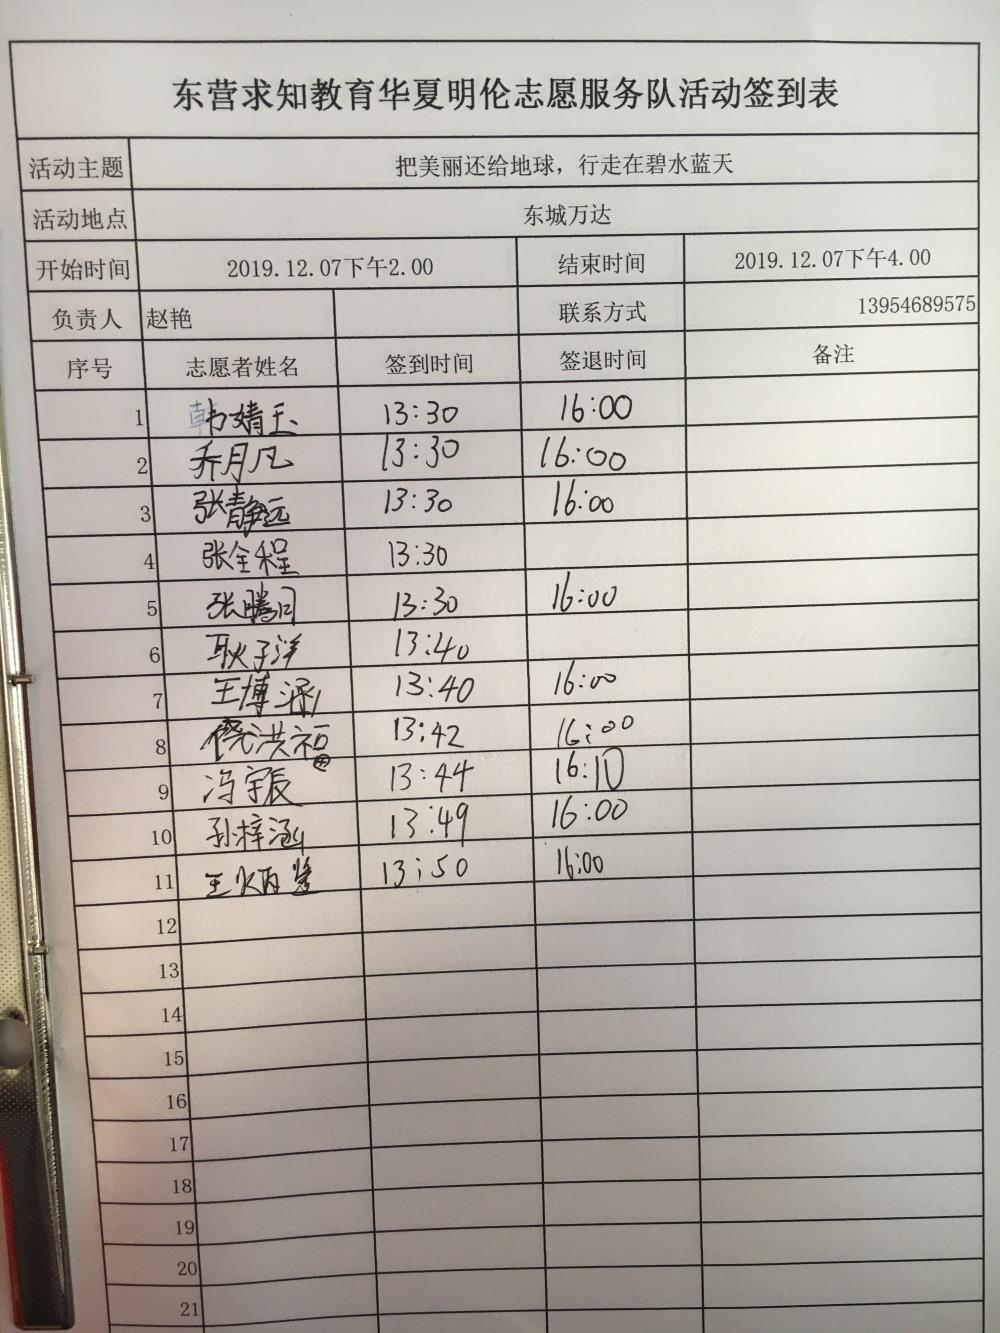 东营求知教育华夏明伦志愿服务队活动签到表
活动主题 把美丽还给地球，行走在碧水蓝天
活动地点 东城万达
开始时间 2019.12.07下午2.00 结束时间 2019.12.07下午4.00
负责人 赵艳 联系方式 13954689575
序号 志愿者姓名 签到时间 签退时间 备注
1 韩婧玉 13:30 16:00
2 乔月凡 13:30 16:00
3 张静远 13:30 16:00
4 张全程 13:30
5 张腾月 13:30 16:00
6 耿子洋 13:40
7 王博涵 13:40 16:00
8 洪福 13:42 16:00
9 冯宇辰 13:44 16:10
10 孙梓涵 13:49 16:00
11 王炳 13:50 16:00
12
13
14
15
16
17
18
19
20
21